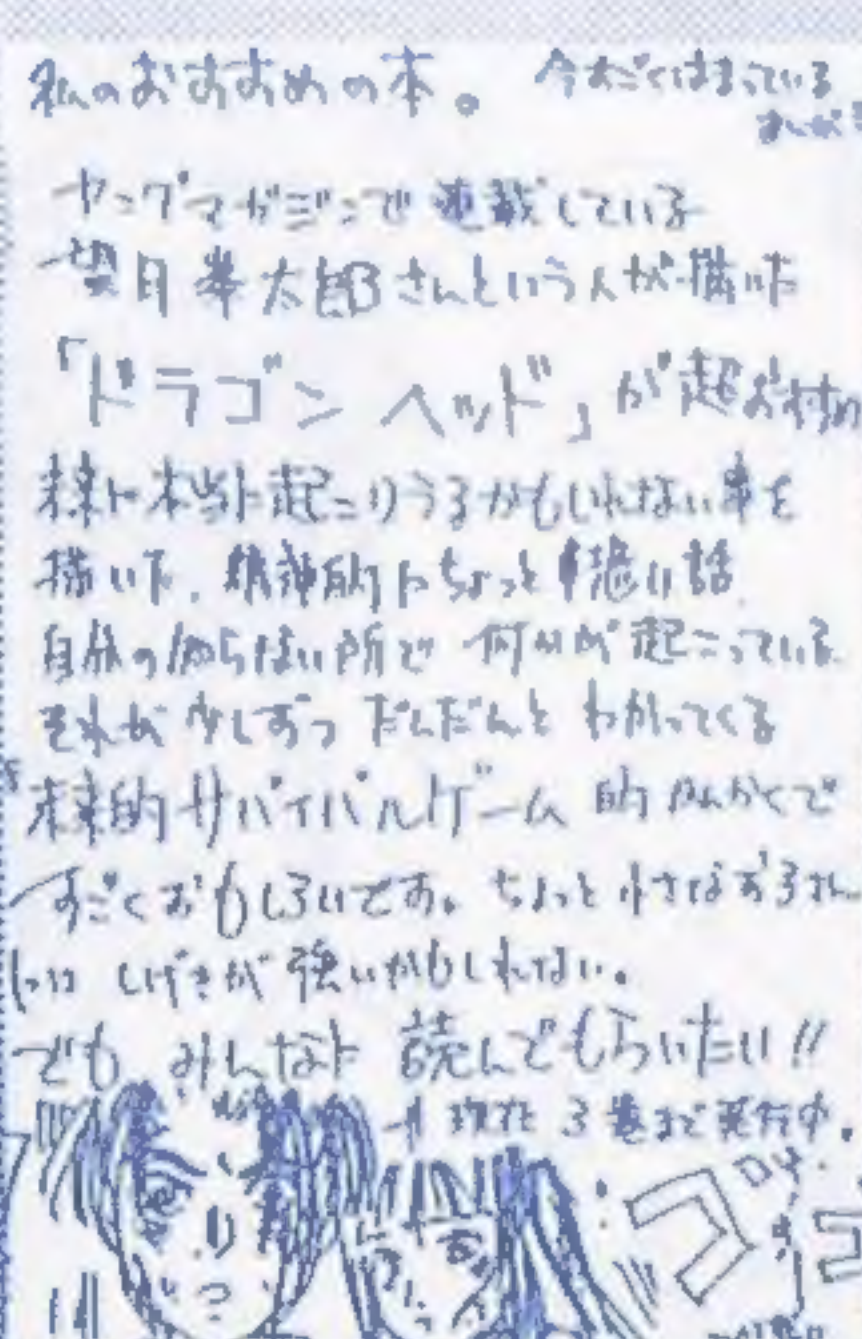 私のおすすめの本。 今すごくはまっている
まんが
ヤングマガジンで連載している
望月峯太郎さんという人が描いた
「ドラゴンヘッド」が超おすすめ
未来に本当に起こりうるかもしれない事を
描いた、精神的にちょっと恐い話
自分の知らない所で何かが起こっている
それが少しずつだんだんとわかってくる
未来的サバイバルゲーム的かんかくで
すごくおもしろいです。ちょっと小さなお子さん
には しげきが強いかもしれない。
でも みんなに 読んでもらいたい!!
現在 3巻まで発行中。
ゴ ゴ